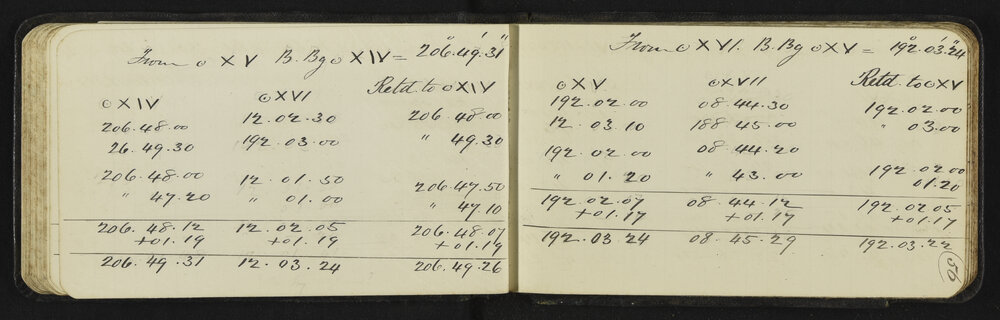 From ⊙ XV B. Bg ⊙ XIV = 206°.49'.31"
⊙ XIV ⊙ XVI Retd. to ⊙ XIV
206.48.00 12.02.30 206.48.00
26.49.30 192.03.00 " 49.30
206.48.00 12.01.50 206.47.50
" 47.20 " 01.00 " 47.10
206.48.12 12.02.05 206.48.07
+01.19 +01.19 +01.19
206.49.31 12.03.24 206.49.26
From ⊙ XVI. B. Bg ⊙ XV = 192°.03'.24"
⊙ XV ⊙ XVII Retd. to ⊙ XV
192.02.00 08.44.30 192.02.00
12.03.10 188.45.00 " 03.00
192.02.00 08.44.20 192.02.00
" 01.20 " 43.00 01.20
192.02.07 08.44.12 192.02.05
+01.17 +01.17 +01.17
192.03.24 08.45.29 192.03.22
36